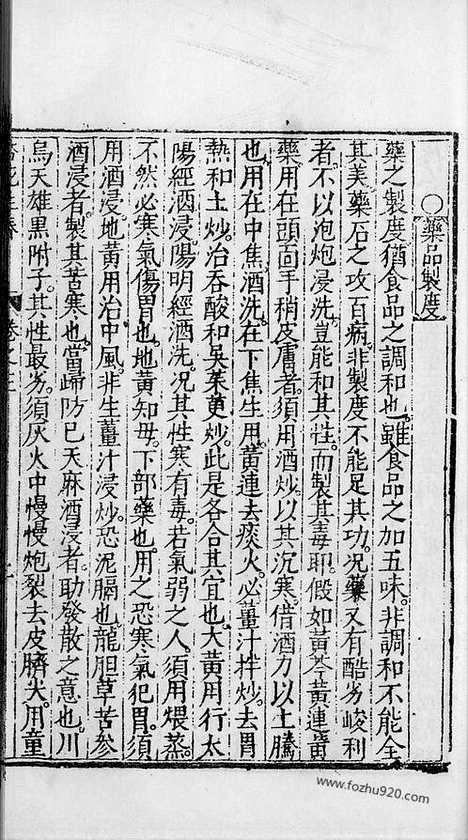 ○藥品製度
藥之製度猶食品之調和也雖食品之加五味非調和不能全
其美藥石之攻百病非製度不能足其功况藥又有酷劣峻利
者不以泡炮浸洗豈能和其性而製其毒耶假如黃芩黃連黃
藥用在頭面手稍皮膚者須用酒炒以其沉寒借酒力以上騰
也用在中焦酒洗在下焦生用黃連去痰火必薑汁拌炒去胃
熱和土炒治吞酸和吳茱萸炒此是各合其宜也大黃用行太
陽經酒浸陽明經酒洗况其性寒有毒若氣弱之人須用煨蒸
不然必寒氣傷胃也地黃知母下部藥也用之恐寒氣犯胃須
用酒浸地黃用治中風非生薑汁浸炒恐泥膈也龍胆草苦參
酒浸者製其苦寒也當歸防已天麻酒浸者助發散之意也川
烏天雄黑附子其性最劣須灰火中慢慢炮裂去皮臍尖用童
卷之三
www.fozhu920.com